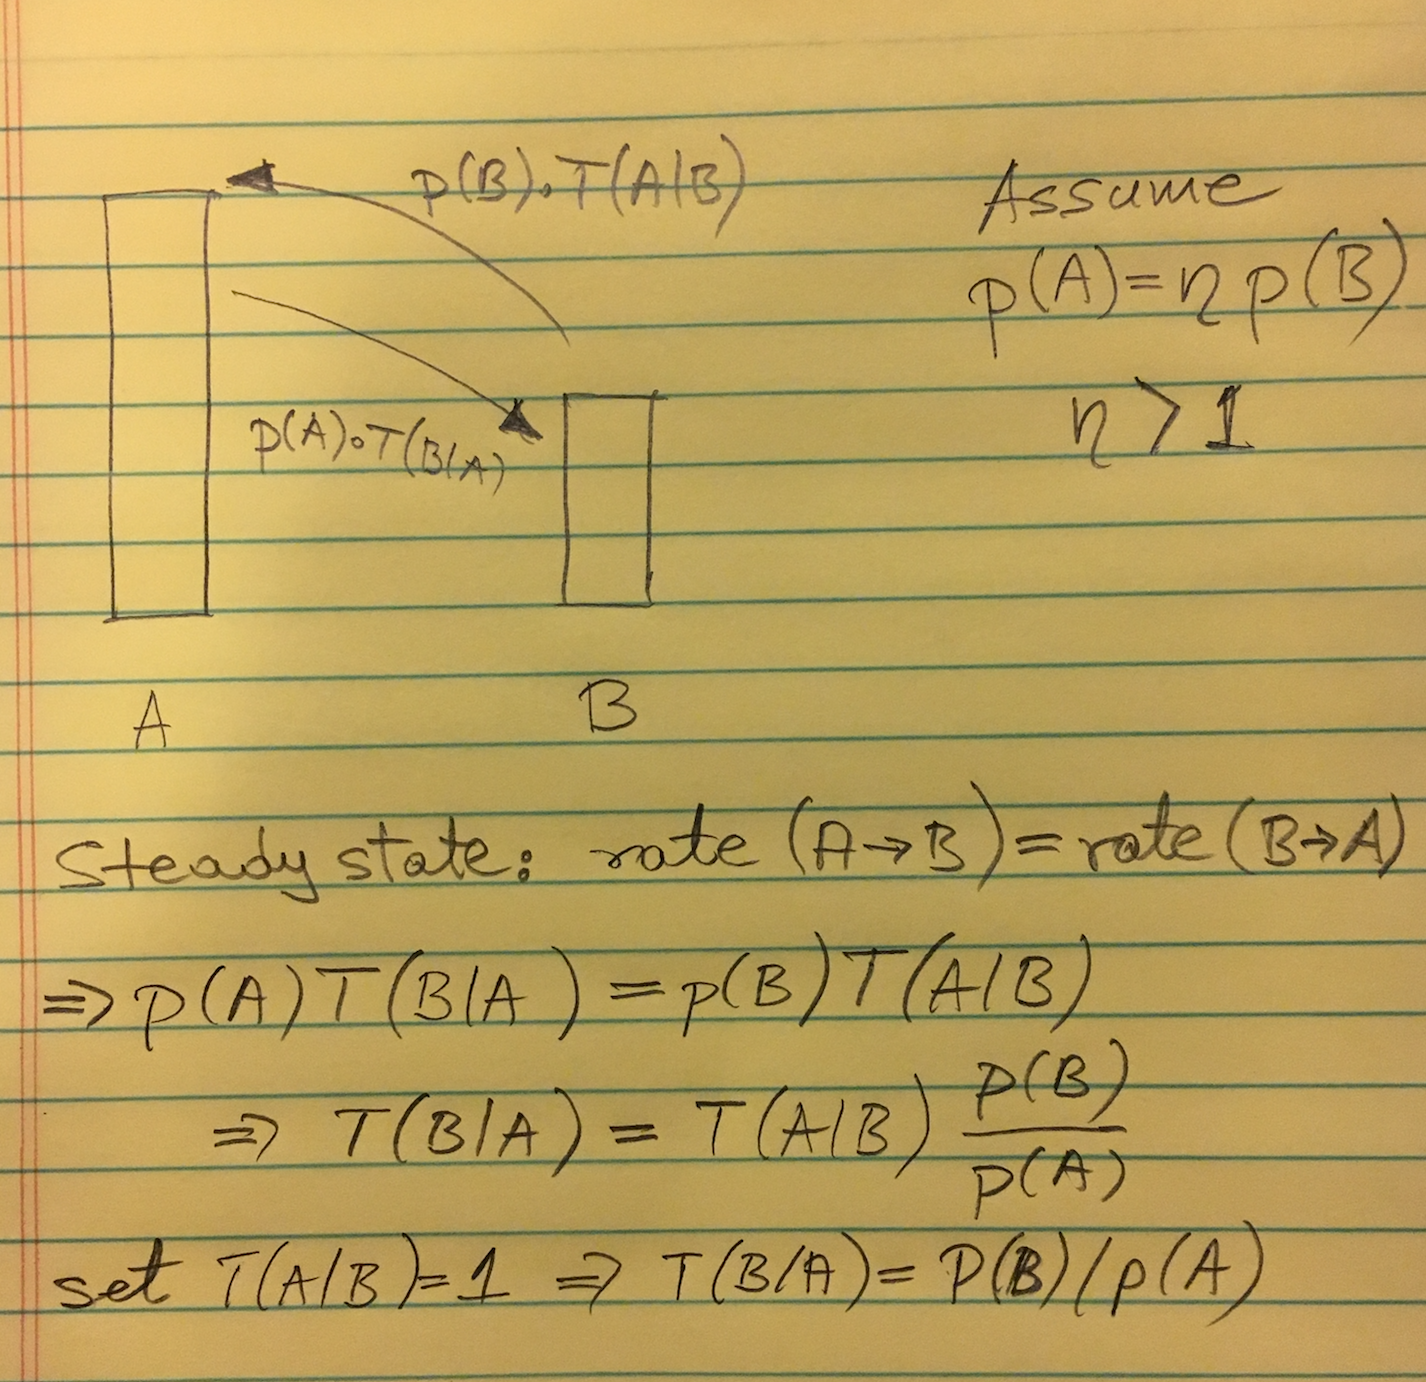 p(B).T(A|B)
Assume
p(A)=η p(B)
η > 1
p(A)∘T(B|A)
A
B
Steady state: rate (A→B)=rate(B→A)
⇒ p(A)T(B|A) = p(B)T(A|B)
⇒ T(B|A) = T(A|B) p(B)/p(A)
set T(A|B)=1 ⇒ T(B|A)= P(B)/p(A)